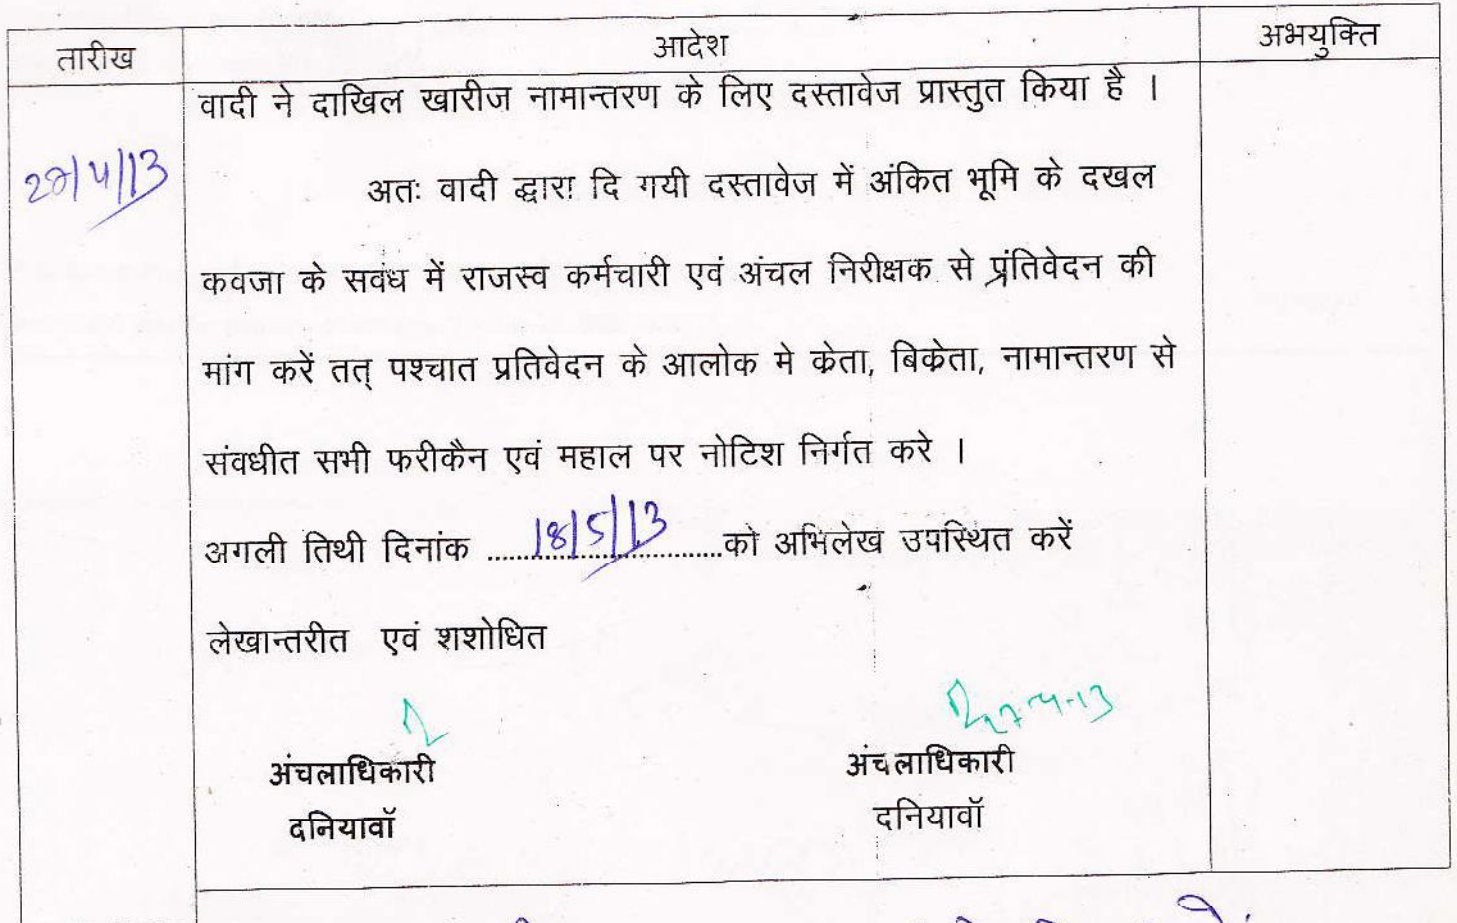 तारीख आदेश अभयुक्ति
वादी ने दाखिल खारीज नामान्तरण के लिए दस्तावेज प्रास्तुत किया है ।
27/4/13
अतः वादी द्धारा दि गयी दस्तावेज में अंकित भूमि के दखल
कवजा के सवंध में राजस्व कर्मचारी एवं अंचल निरीक्षक से प्रंतिवेदन की
मांग करें तत् पश्चात प्रतिवेदन के आलोक मे केता, बिकेता, नामान्तरण से
संवधीत सभी फरीकैन एवं महाल पर नोटिश निर्गत करे ।
अगली तिथी दिनांक ..........18/5/13..........को अभिलेख उपस्थित करें
लेखान्तरीत एवं शशोधित
27-4-13
अंचलाधिकारी अंचलाधिकारी
दनियावॉ दनियावॉ